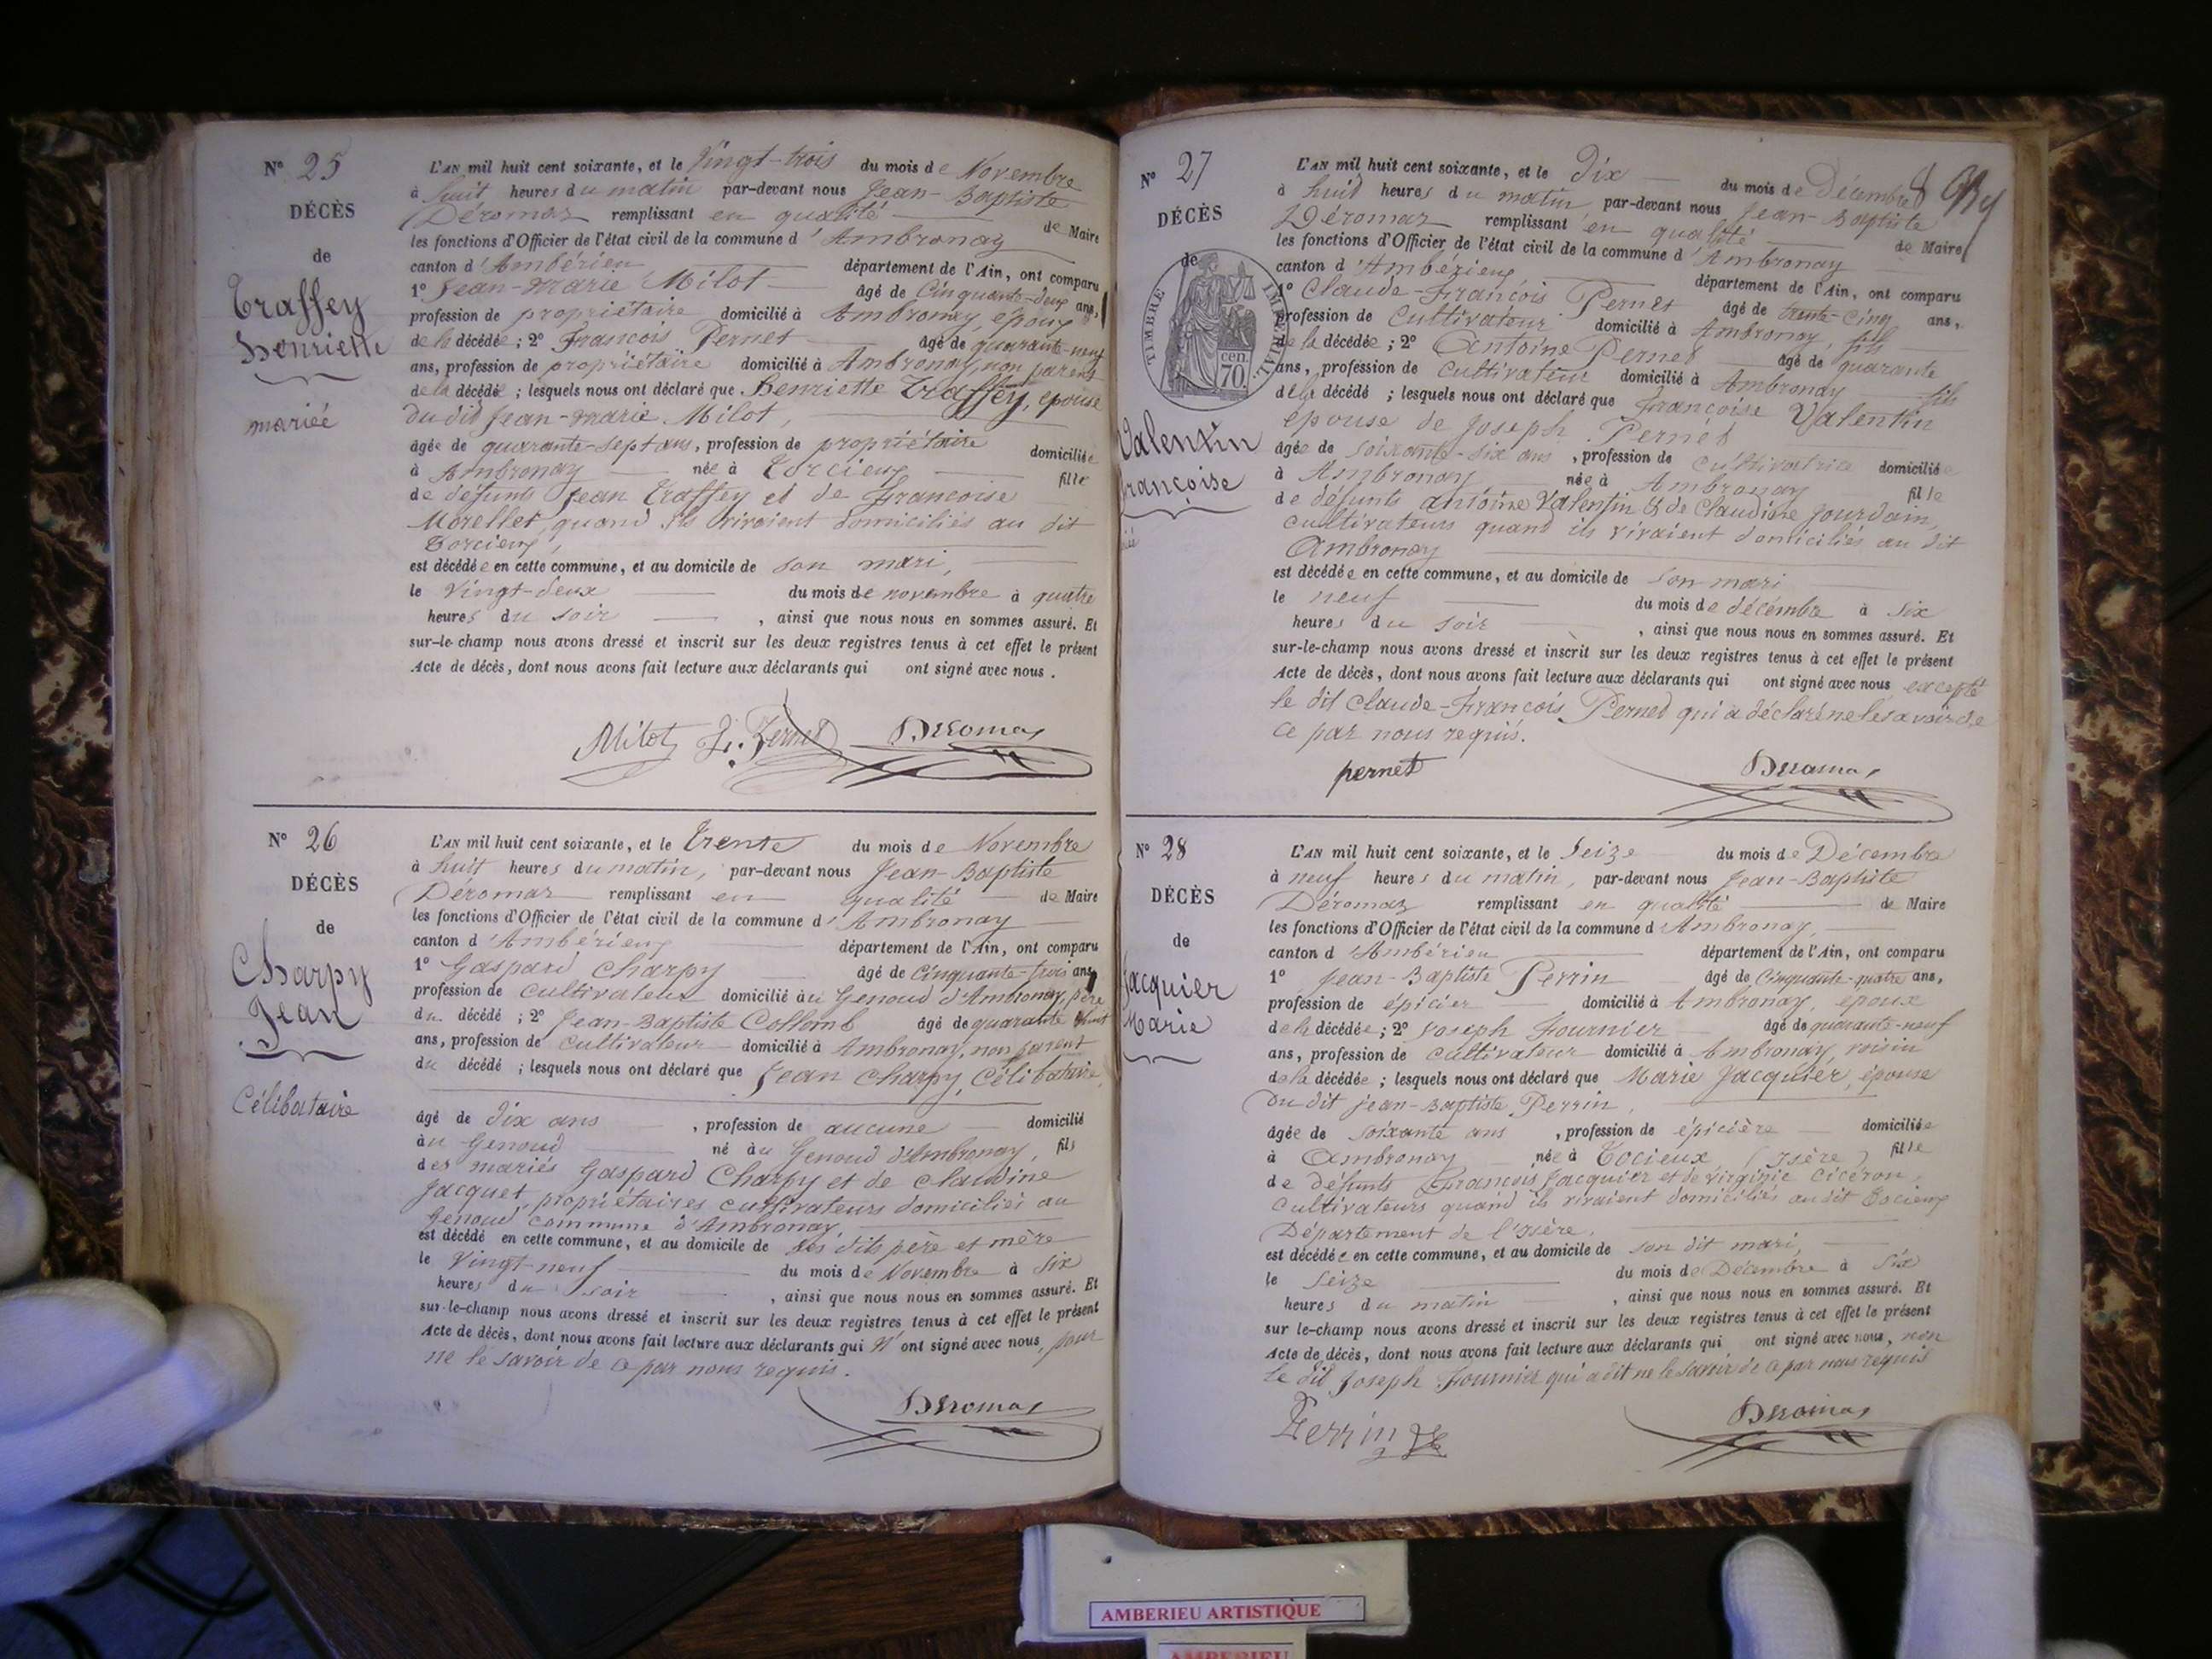 N° 25
DÉCÈS
de
Traffey
Henriette
mariée
L'AN mil huit cent soixante, et le Vingt-trois du mois de Novembre
à huit heures du matin par-devant nous Jean-Baptiste
Déromaz remplissant en qualité de Maire
les fonctions d'Officier de l'état civil de la commune d'Ambronay
canton d'Ambérieux département de l'Ain, ont comparu
1° Jean-Marie Milot âgé de Cinquante-deux ans,
profession de propriétaire domicilié à Ambronay, époux
de la décédée ; 2° François Pernet âgé de quarante-neuf
ans, profession de propriétaire domicilié à Ambronay, non parent
de la décédée ; lesquels nous ont déclaré que Henriette Traffey, épouse
du dit Jean-Marie Milot,
âgée de quarante-sept ans, profession de propriétaire domiciliée
à Ambronay née à Torcieux fille
de défunts Jean Traffey et de Françoise
Morellet, quand ils vivaient domiciliés au dit
Torcieux,
est décédée en cette commune, et au domicile de son mari,
le Vingt-deux du mois de novembre à quatre
heures du soir , ainsi que nous nous en sommes assuré. Et
sur-le-champ nous avons dressé et inscrit sur les deux registres tenus à cet effet le présent
Acte de décès, dont nous avons fait lecture aux déclarants qui ont signé avec nous.
Milot F. Pernet Deromas
N° 26
DÉCÈS
de
Charpy
Jean
Célibataire
L'AN mil huit cent soixante, et le trente du mois de Novembre
à huit heures du matin, par-devant nous Jean-Baptiste
Déromaz remplissant en qualité de Maire
les fonctions d'Officier de l'état civil de la commune d'Ambronay
canton d'Ambérieux département de l'Ain, ont comparu
1° Gaspard Charpy âgé de Cinquante-trois ans,
profession de cultivateur domicilié au Genoud d'Ambronay, père
du décédé ; 2° Jean-Baptiste Collomb âgé de quarante huit
ans, profession de cultivateur domicilié à Ambronay, non parent
du décédé ; lesquels nous ont déclaré que Jean Charpy, Célibataire,
âgé de dix ans , profession de aucune domicilié
au Genoud né au Genoud d'Ambronay, fils
des mariés Gaspard Charpy et de Claudine
Jacquet, propriétaires cultivateurs domiciliés au
Genoud commune d'Ambronay,
est décédé en cette commune, et au domicile de ses dits père et mère
le Vingt-neuf du mois de Novembre à six
heures du soir , ainsi que nous nous en sommes assuré. Et
sur-le-champ nous avons dressé et inscrit sur les deux registres tenus à cet effet le présent
Acte de décès, dont nous avons fait lecture aux déclarants qui n'ont signé avec nous, pour
ne le savoir de ce par nous requis.
Deromas
N° 27
DÉCÈS
de
TIMBRE IMPÉRIAL
70 cen.
Valentin
Françoise
L'AN mil huit cent soixante, et le Dix du mois de Décembre
à huit heures du matin par-devant nous Jean-Baptiste
Déromaz remplissant en qualité de Maire
les fonctions d'Officier de l'état civil de la commune d'Ambronay
canton d'Ambérieux département de l'Ain, ont comparu
1° Claude-François Pernet âgé de trente-cinq ans,
profession de Cultivateur domicilié à Ambronay, fils
de la décédée ; 2° Antoine Pernet âgé de quarante
ans, profession de cultivateur domicilié à Ambronay fils
de la décédé ; lesquels nous ont déclaré que Françoise Valentin
épouse de Joseph Pernet
âgée de soixante-six ans , profession de cultivatrice domiciliée
à Ambronay née à Ambronay fille
de défunts antoine Valentin & de Claudine Jourdain,
cultivateurs quand ils vivaient domiciliés au dit
Ambronay
est décédée en cette commune, et au domicile de son mari
le neuf du mois de décembre à six
heures du soir , ainsi que nous nous en sommes assuré. Et
sur-le-champ nous avons dressé et inscrit sur les deux registres tenus à cet effet le présent
Acte de décès, dont nous avons fait lecture aux déclarants qui ont signé avec nous excepté
le dit Claude-François Pernet qui a déclaré ne le savoir de
ce par nous requis.
pernet Deromas
N° 28
DÉCÈS
de
Jacquier
Marie
L'AN mil huit cent soixante, et le Seize du mois de Décembre
à neuf heures du matin, par-devant nous Jean-Baptiste
Déromaz remplissant en qualité de Maire
les fonctions d'Officier de l'état civil de la commune d Ambronay,
canton d'Ambérieu département de l'Ain, ont comparu
1° Jean-Baptiste Perrin âgé de Cinquante-quatre ans,
profession de épicier domicilié à Ambronay, époux
de la décédée ; 2° Joseph Fournier âgé de quarante-neuf
ans, profession de cultivateur domicilié à Ambronay, voisin
de la décédée ; lesquels nous ont déclaré que Marie Jacquier, épouse
Du dit Jean-Baptiste Perrin,
âgée de soixante ans , profession de épicière domiciliée
à Ambronay née à Tocieux (Isère) fille
de défunts François Jacquier et de virginie Cicéron,
cultivateurs quand ils vivaient domiciliés au dit Tocieux
Département de l'Isère.
est décédée en cette commune, et au domicile de son dit mari,
le Seize du mois de Décembre à Six
heures du matin , ainsi que nous nous en sommes assuré. Et
sur le-champ nous avons dressé et inscrit sur les deux registres tenus à cet effet le présent
Acte de décès, dont nous avons fait lecture aux déclarants qui ont signé avec nous, non
le dit Joseph Fournier qui a dit ne le savoir de ce par nous requis
Perrin Deromas
AMBERIEU ARTISTIQUE
AMBERIEU